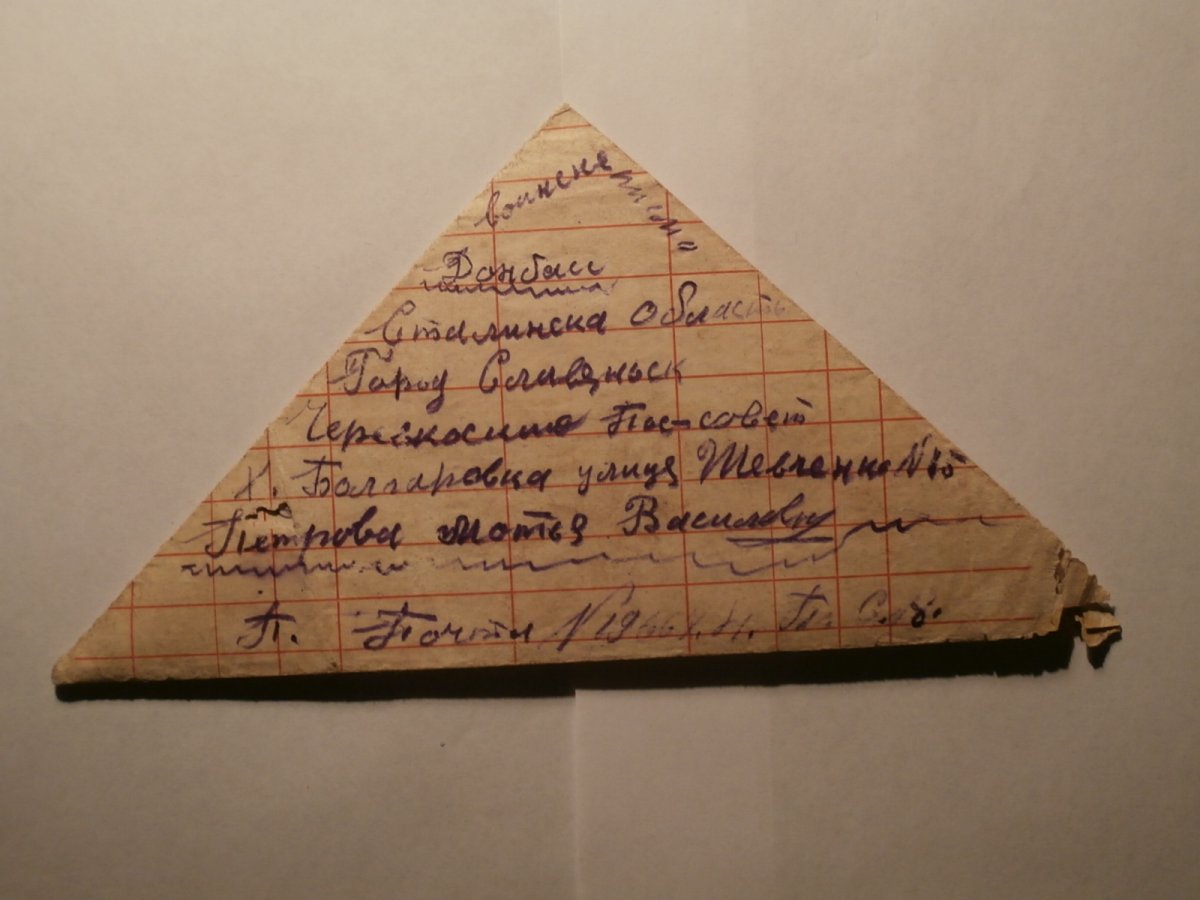 воинске письмо
Донбасс
Сталинска область
Город Славянск
Черескосино Пос-совет
Х. Болгаровка улица Шевченко N 15
Петрова Мотья Василовн
П. Почта N 19